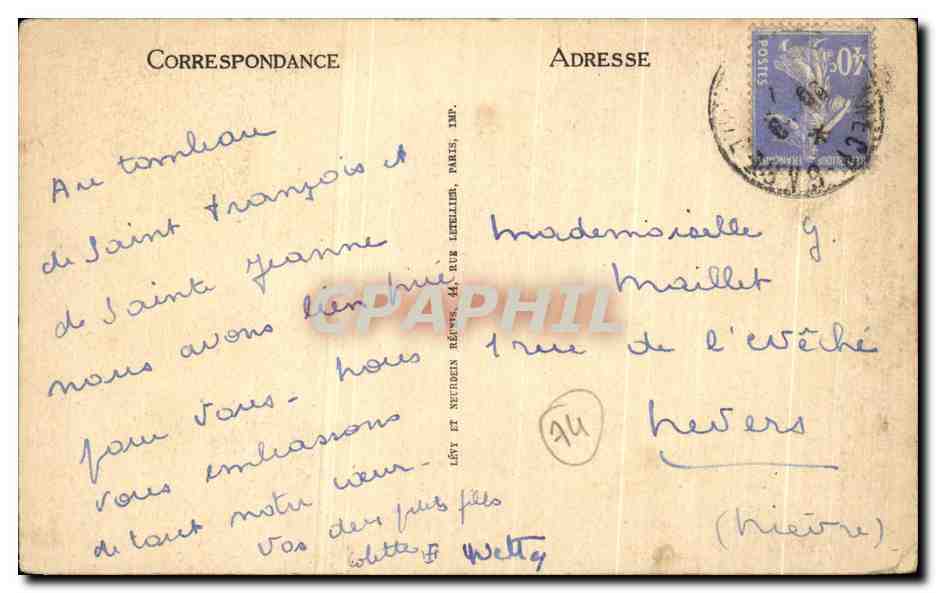 CORRESPONDANCE
Au tombeau
de Saint François et
de Sainte Jeanne
nous avons bien prié
pour vous - nous
vous embrassons
de tout notre cœur -
Vos deux petites filles
Colette et Ketty
LÉVY ET NEURDEIN RÉUNIS, 44, RUE LETELLIER, PARIS, IMP.
ADRESSE
POSTES
40c
RÉPUBLIQUE FRANÇAISE
Mademoiselle G.
Maillet
1 rue de l'Evêché
Nevers
(Nièvre)
74
CPAPHIL